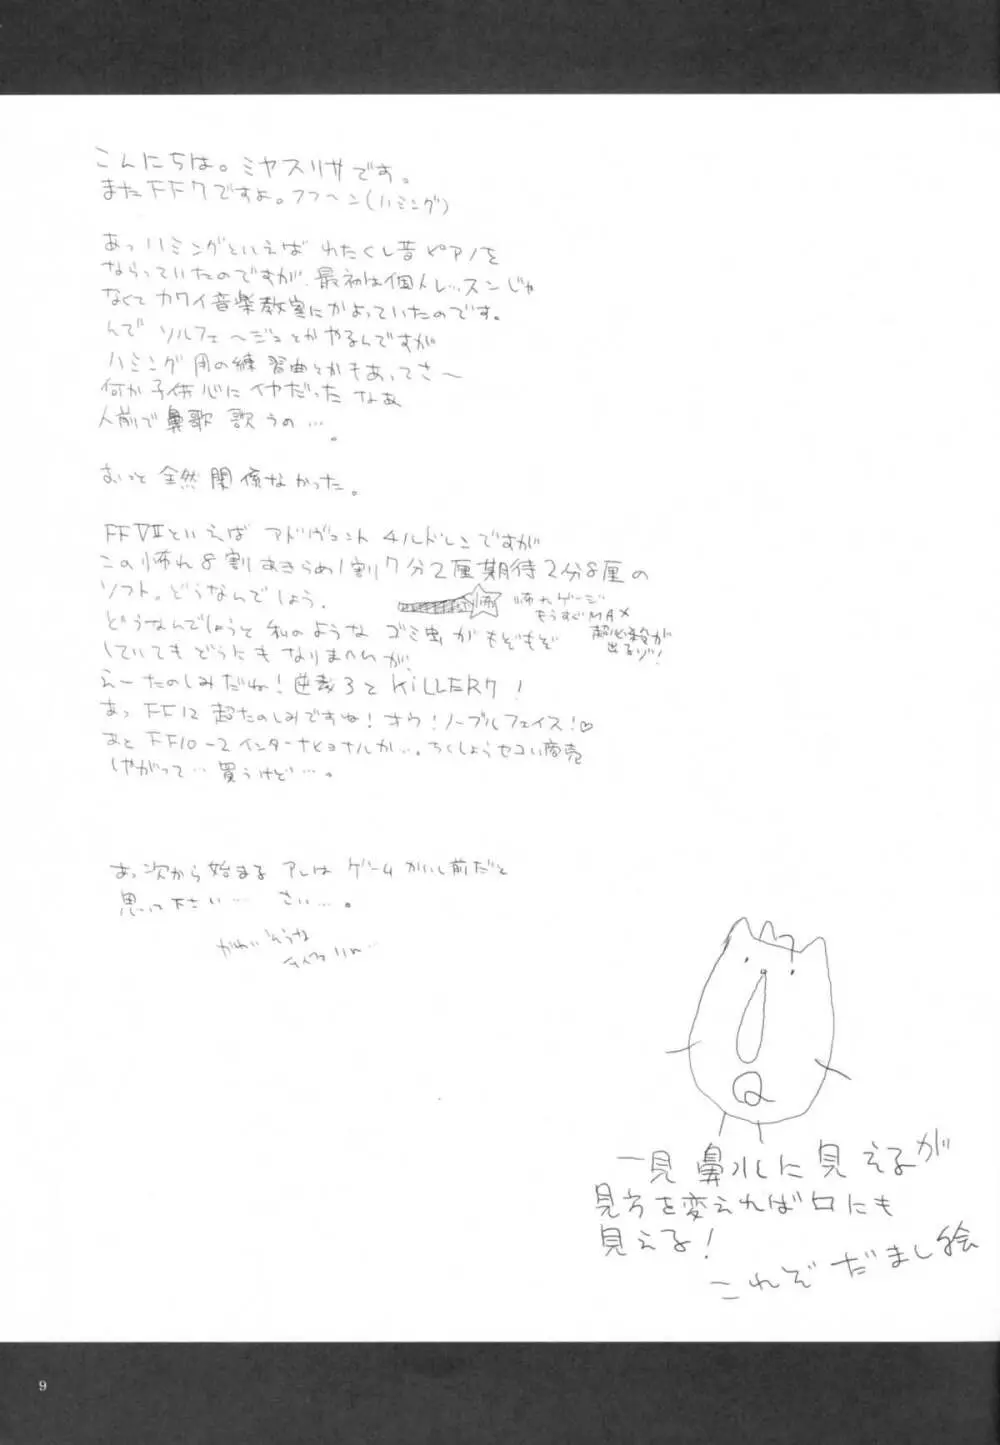 こんにちは。ミヤスリサです。
またFF7ですよ。フフ〜ン(ハミング)
あっハミングといえば わたくし昔ピアノを
ならっていたのですが、最初は個人レッスンじゃ
なくてカワイ音楽教室にかよっていたのです。
んで ソルフェ〜ジュとかやるんですが
ハミング用の練習曲とかもあってさ〜
何か子供心にイヤだったなあ
人前で鼻歌 歌うの…。
おっと 全然関係なかった。
FFⅦといえば アドヴェント チルドレンですが
この怖れ8割あきらめ1割7分2厘期待2分8厘の
ソフト。どうなんでしょう。
怖 怖れゲージ
もうすぐMAX
超必殺が
出るゾ!
どうなんでしょうと 私のような ゴミ虫が もぞもぞ
していても どうにも なりませんが、
えーたのしみだね!逆裁3とKiLLER7!
あっ FF12 超たのしみですね!オウ!ノーブルフェイス!♡
あと FF10-2インターナショナルか…。ちくしょうセコい商売
しやがって…買うけど…。
あっ次から始まる アレは ゲーム がいし前だと
思って下さい… さい…。
かわいそうな
一見 鼻水に見えるが
見方を変えれば口にも
見える!
これぞ だまし絵
9